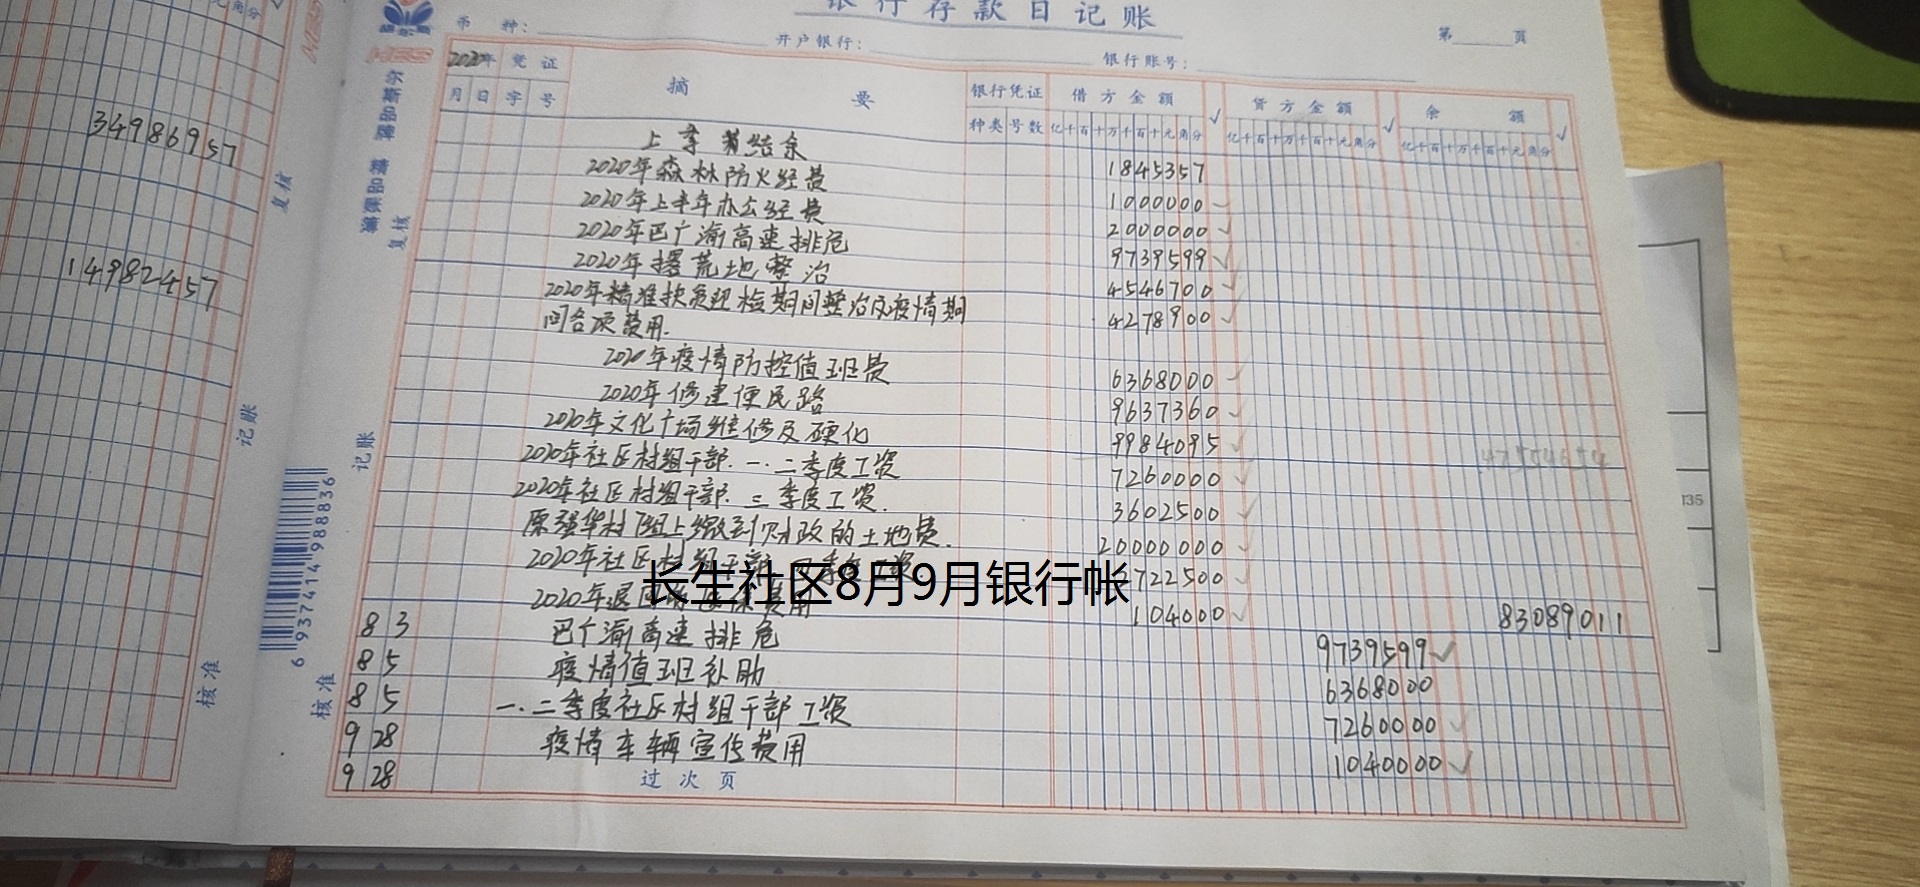 银行存款日记账
币 种：
开户银行：
银行账号：
第 页
2020年 凭 证 摘 要 银行凭证 借方金额 √ 贷方金额 √ 余 额 √
月 日 字 号 种类 号数 亿千百十万千百十元角分 亿千百十万千百十元角分 亿千百十万千百十元角分
上季 结余 1845357
2020年森林防火经费 1000000
2020年上半年办公经费 2000000
2020年巴广渝高速排危 9739599
2020年撂荒地整治 4546700
2020年精准扶贫 检期间整治及疫情期 4278900
间各项费用.
2020年疫情防控值班费 6368000
2020年修建便民路 9637360
2020年文化广场维修及硬化 9984095
2020年社区村组干部.一.二季度工资 7260000
2020年社区村组干部.三季度工资. 3602500
原强华村 组上缴到财政的土地费. 20000000
2020年社区村组干部 工资 722500
2020年退 费用 104000 83089011
长生社区8月9月银行帐
8 3 巴广渝高速排危 9739599
8 5 疫情值班补助 6368000
8 5 一.二季度社区村组干部工资 7260000
9 28 疫情车辆宣传费用 1040000
9 28 过次页
34986957
14982457
复核
记账
核准
复核
记账
核准
6 937414 988836
135